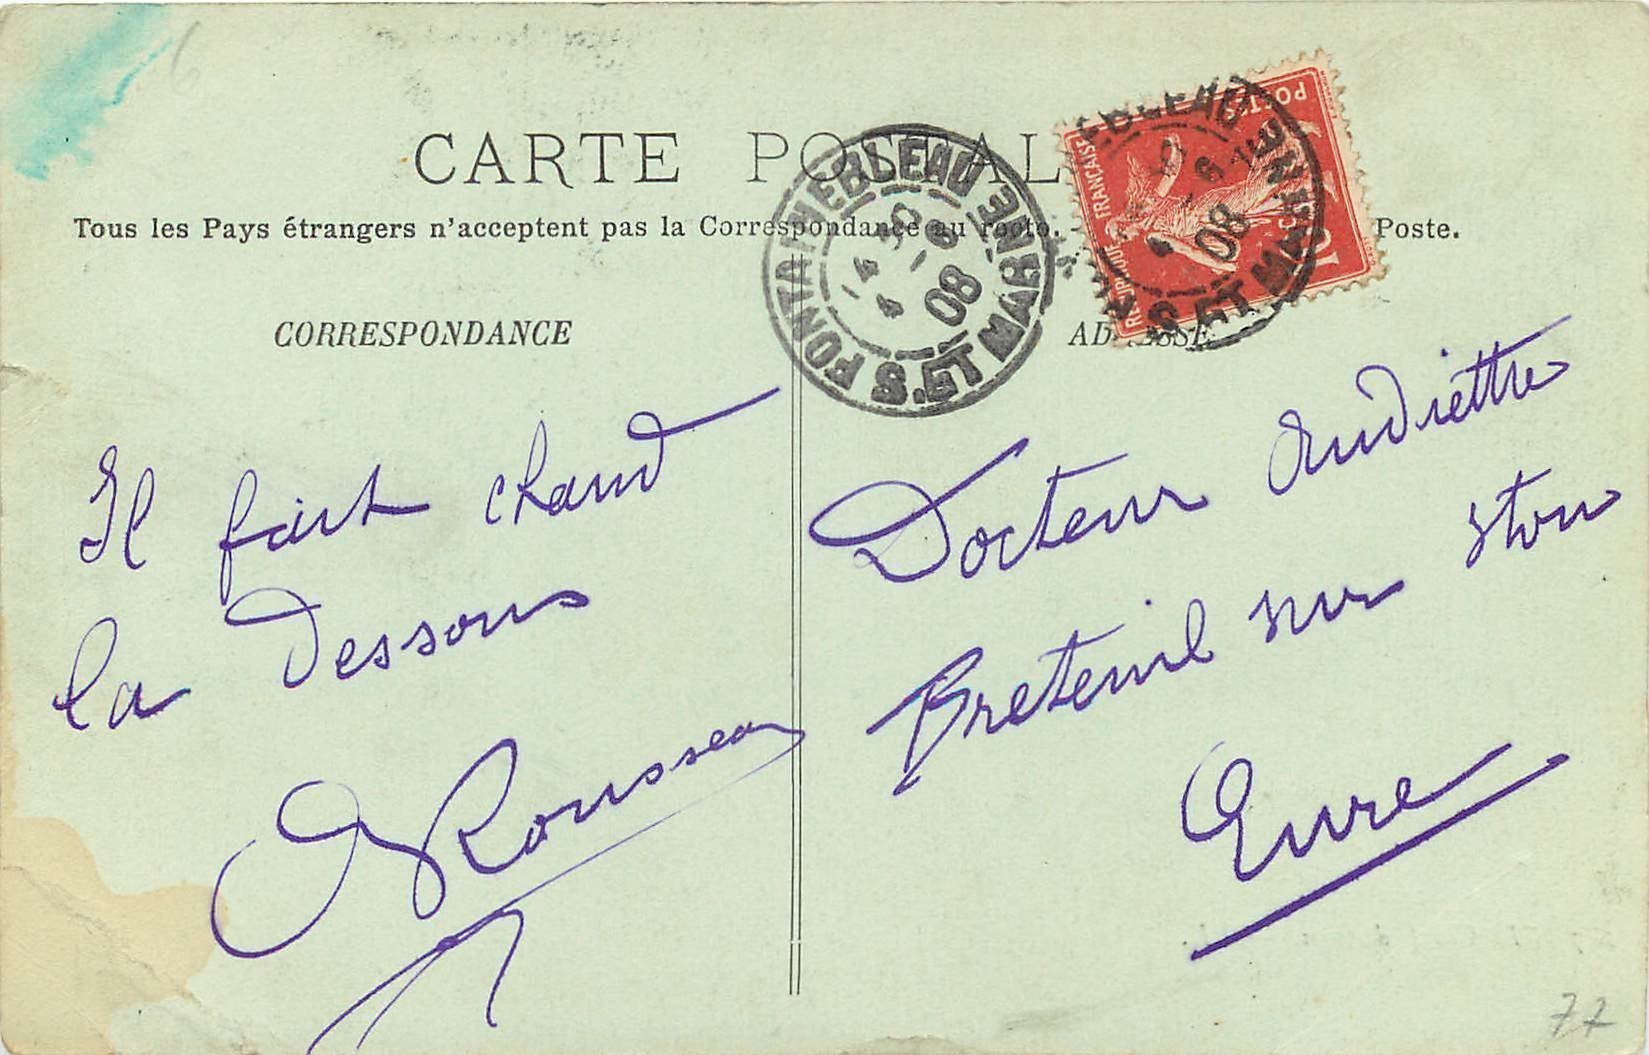 CARTE POSTALE
Tous les Pays étrangers n'acceptent pas la Correspondance au recto. Poste.
CORRESPONDANCE
ADRESSE
FONTAINEBLEAU
S. ET MARNE
4 -6
08
REPUBLIQUE FRANÇAISE
POSTES
10 c
EBLEAU
S. ET MARNE
08
Il fait chaud
la dessous
Rousseau
Docteur Audiette
Breteuil sur Iton
Eure
77
6